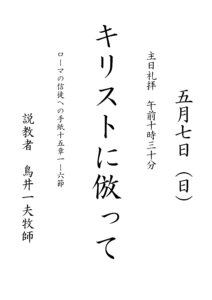 五月七日（日）
主日礼拝　午前十時三十分
キリストに倣って
ローマの信徒への手紙十五章一－六節
説教者　鳥井一夫牧師